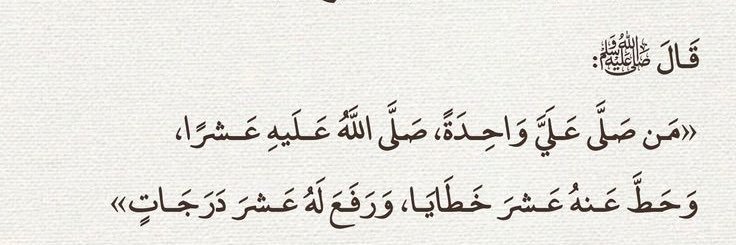 قَالَ ﷺ:
«مَن صَلَّى عَلَيَّ وَاحِدَةً، صَلَّى اللَّهُ عَلَيهِ عَشرًا،
وَحَطَّ عَنهُ عَشرَ خَطَايَا، وَرَفَعَ لَهُ عَشرَ دَرَجَاتٍ»